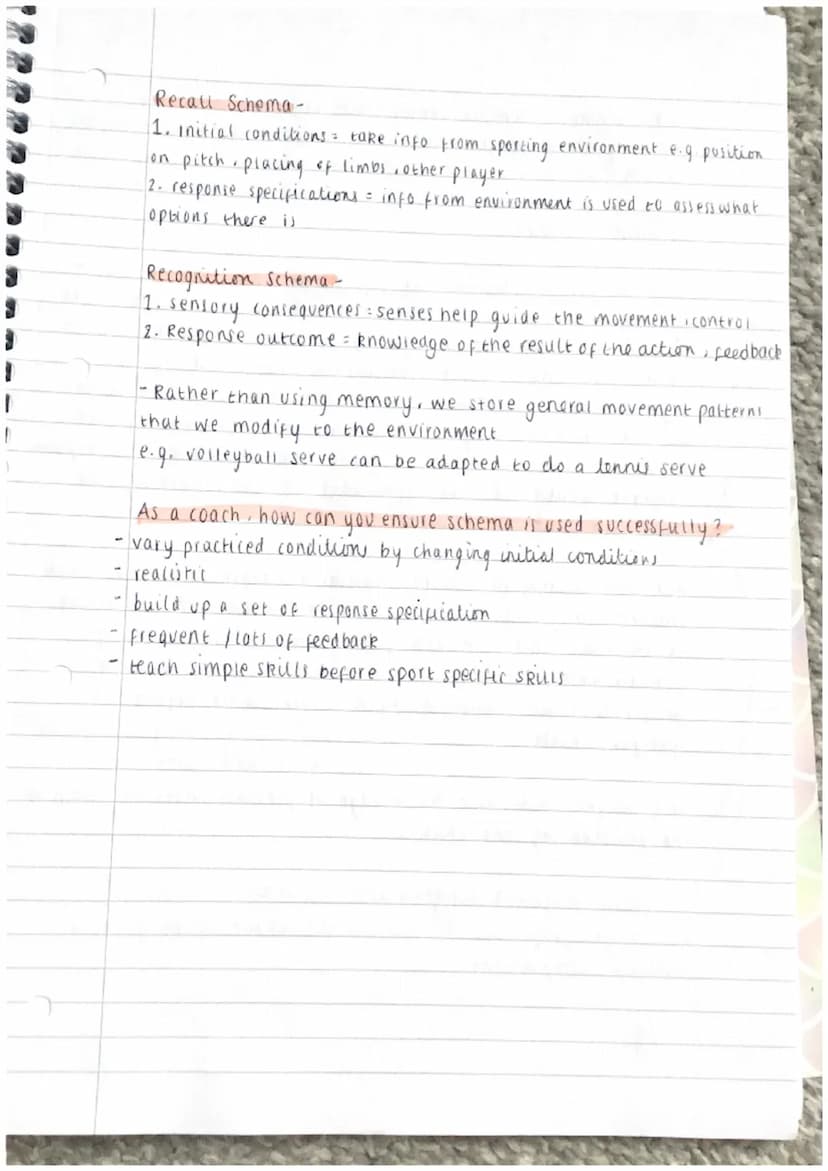 Recall Schema -
1. Initial conditions = take info from sporting environment e.g position
on pitch, placing of limbs, other player
2. response specifications = info from environment is used to assess what
options there is
Recognition Schema -
1. sensory consequences = senses help guide the movement, control
2. Response outcome = knowledge of the result of the action, feedback
- Rather than using memory, we store general movement patterns
that we modify to the environment
e.g. volleyball serve can be adapted to do a tennis serve
As a coach, how can you ensure schema is used successfully?
- vary practiced conditions by changing initial conditions
- realistic
- build up a set of response specification
- frequent / lots of feedback
- teach simple skills before sport specific skills